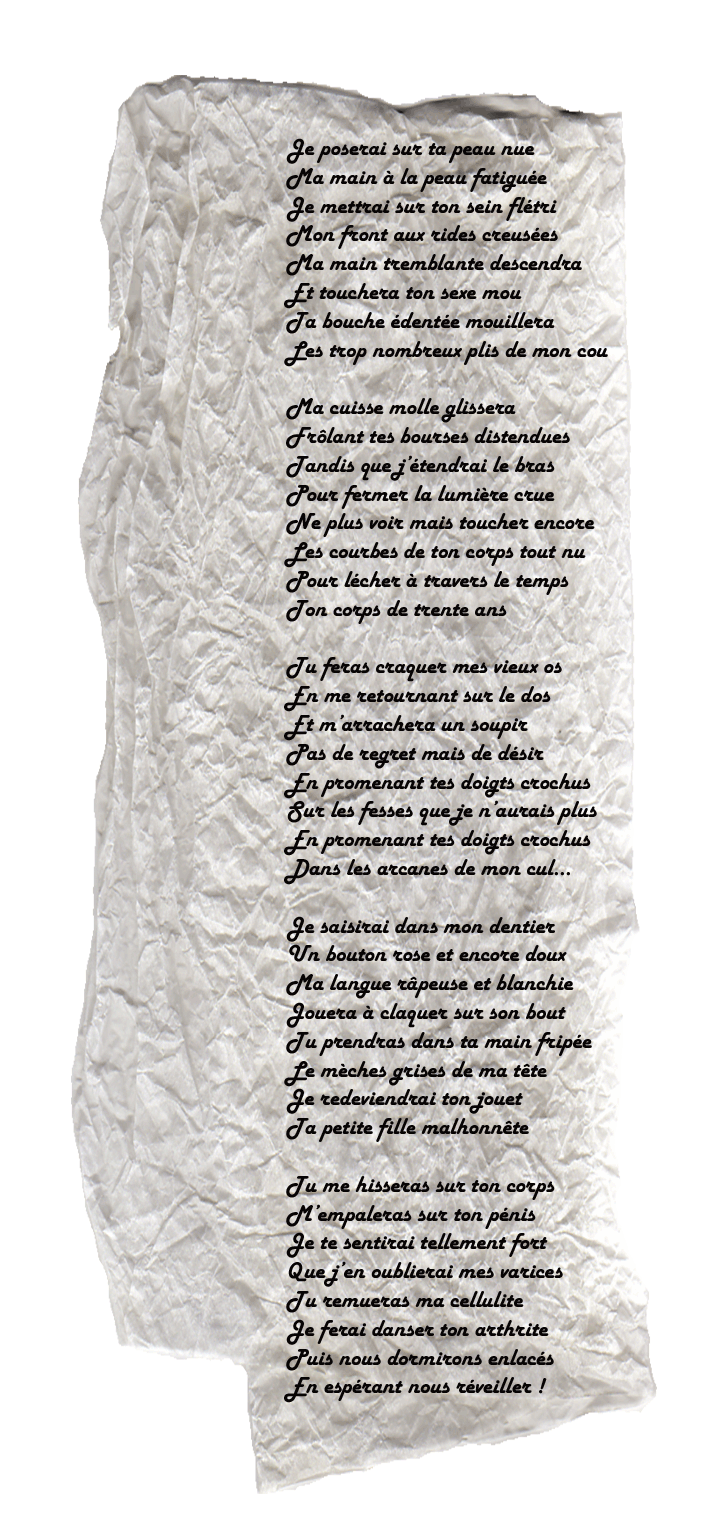 Je poserai sur ta peau nue
Ma main à la peau fatiguée
Je mettrai sur ton sein flétri
Mon front aux rides creusées
Ma main tremblante descendra
Et touchera ton sexe mou
Ta bouche édentée mouillera
Les trop nombreux plis de mon cou

Ma cuisse molle glissera
Frôlant tes bourses distendues
Tandis que j'étendrai le bras
Pour fermer la lumière crue
Ne plus voir mais toucher encore
Les courbes de ton corps tout nu
Pour lécher à travers le temps
Ton corps de trente ans

Tu feras craquer mes vieux os
En me retournant sur le dos
Et m'arrachera un soupir
Pas de regret mais de désir
En promenant tes doigts crochus
Sur les fesses que je n'aurais plus
En promenant tes doigts crochus
Dans les arcanes de mon cul...

Je saisirai dans mon dentier
Un bouton rose et encore doux
Ma langue râpeuse et blanchie
Jouera à claquer sur son bout
Tu prendras dans ta main fripée
Le mèches grises de ma tête
Je redeviendrai ton jouet
Ta petite fille malhonnête

Tu me hisseras sur ton corps
M'empaleras sur ton pénis
Je te sentirai tellement fort
Que j'en oublierai mes varices
Tu remueras ma cellulite
Je ferai danser ton arthrite
Puis nous dormirons enlacés
En espérant nous réveiller !